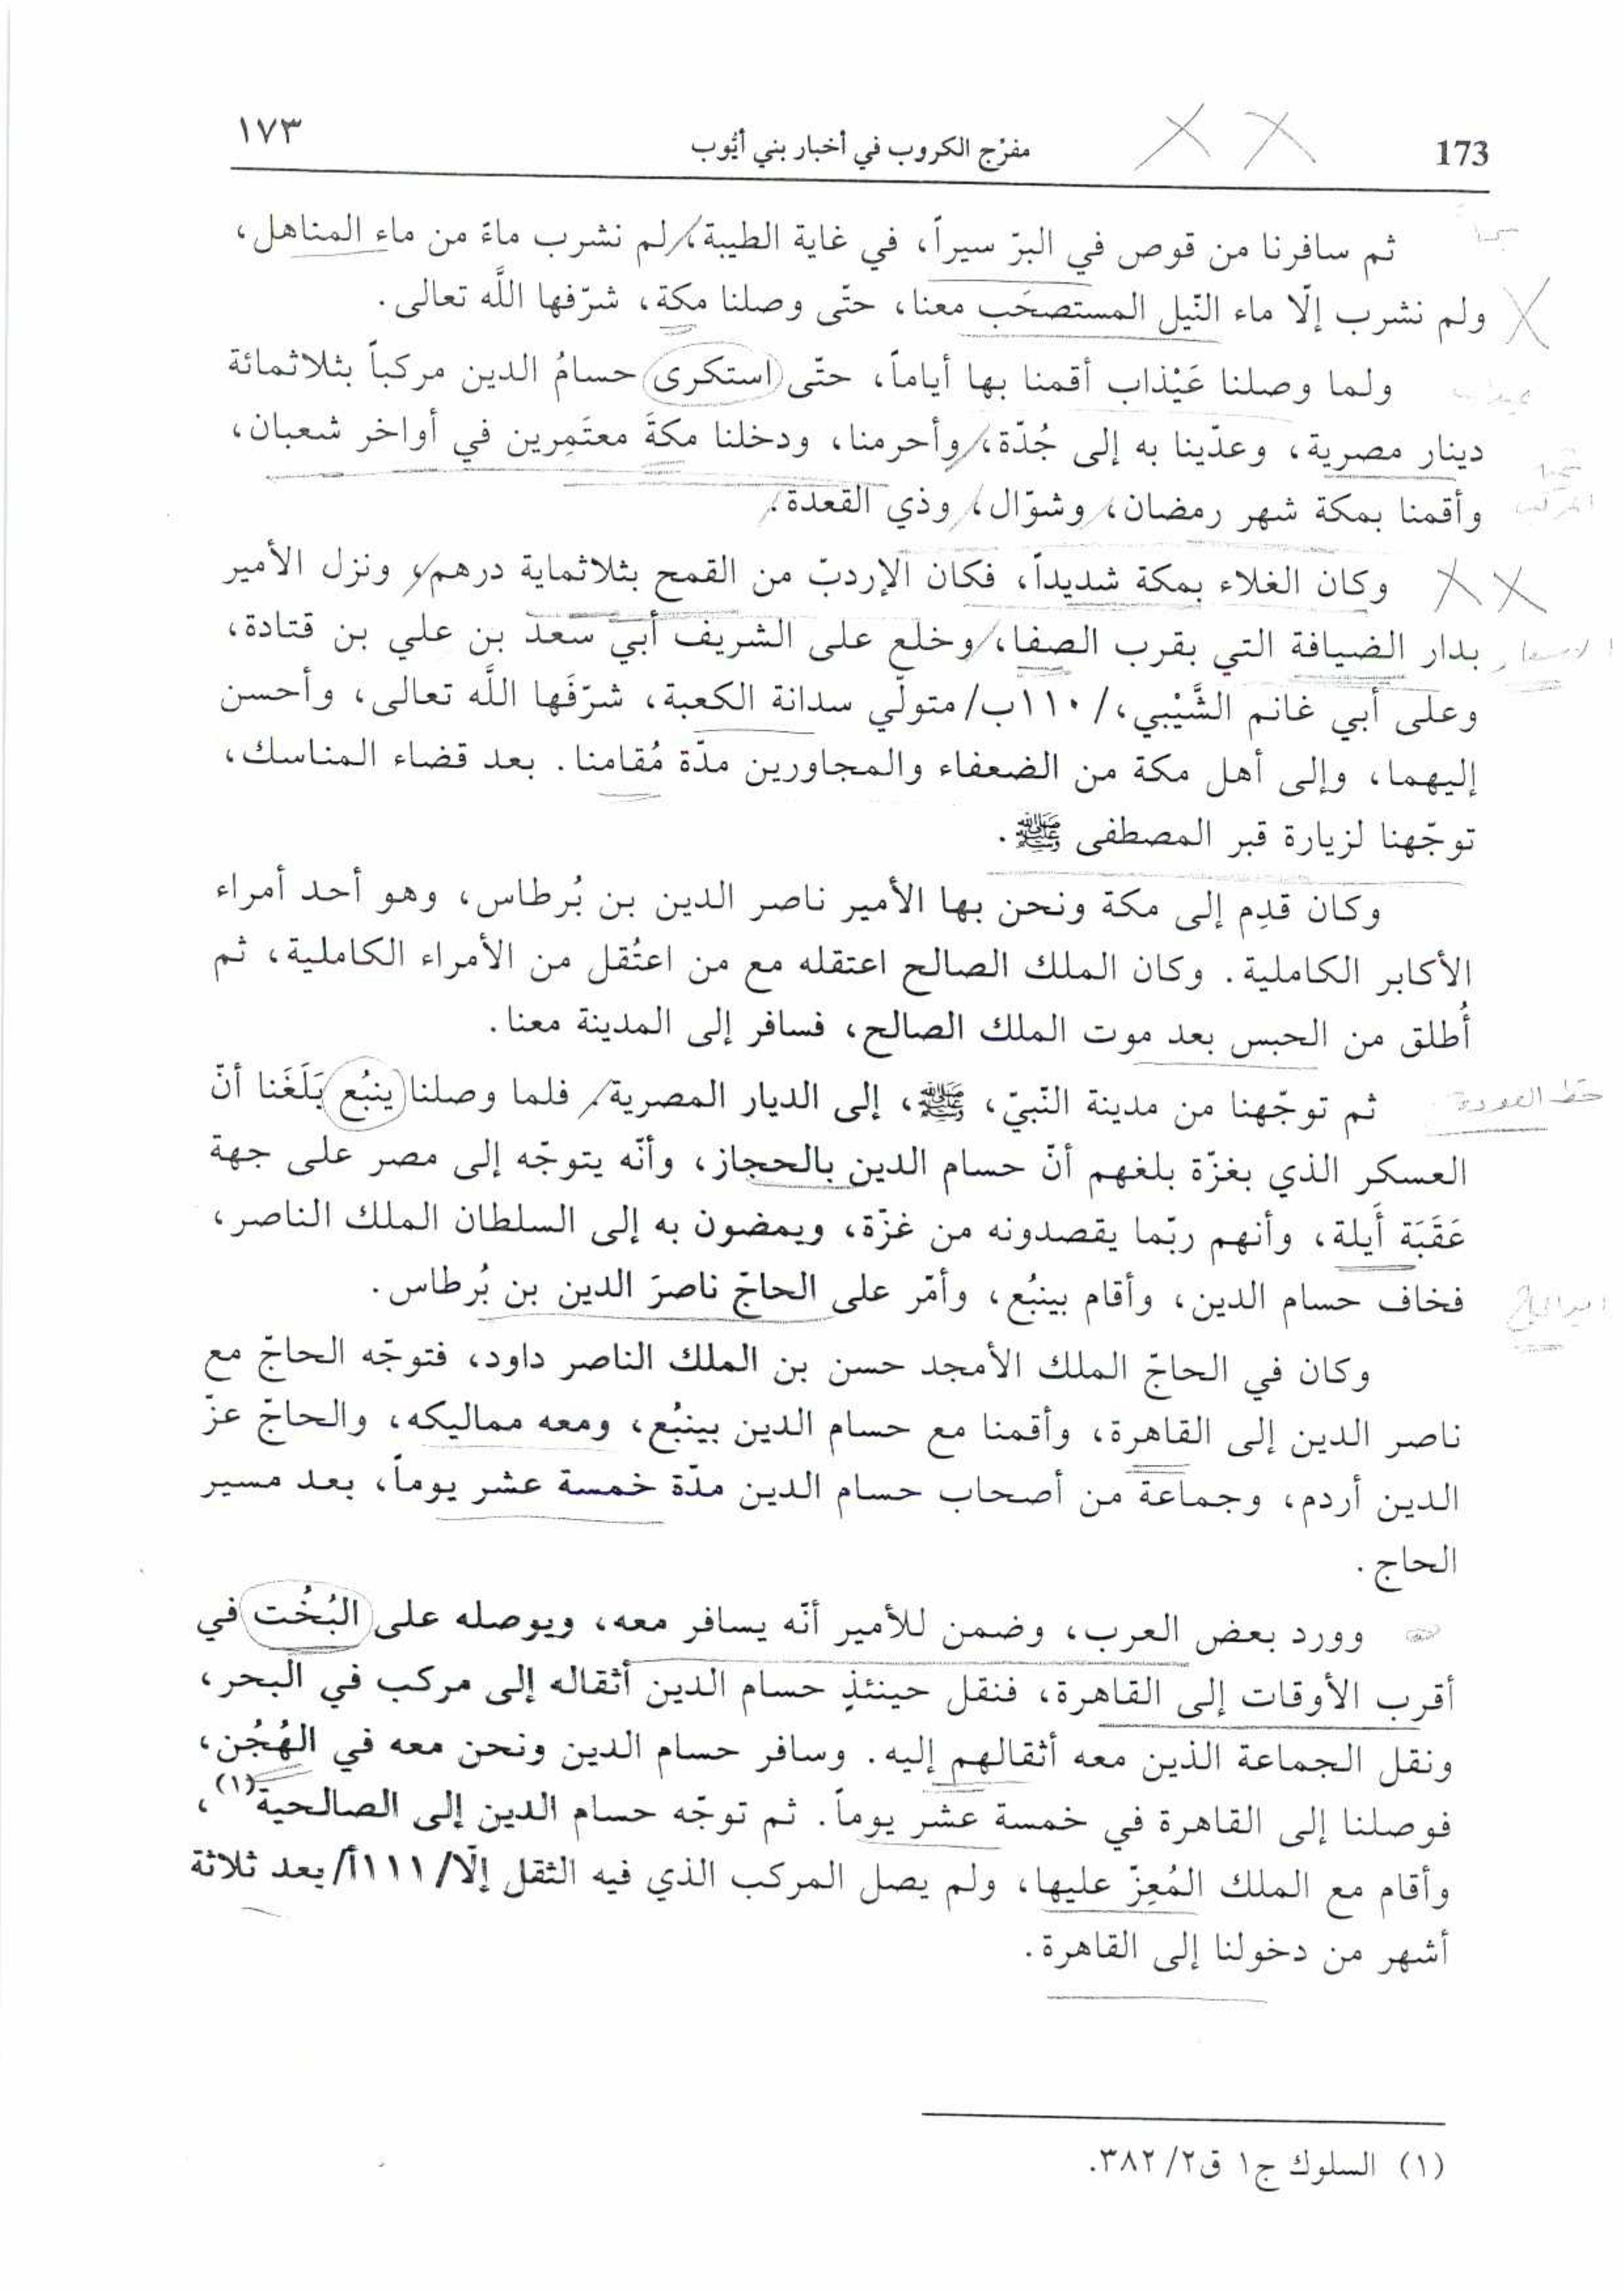 173 مفرّج الكروب في أخبار بني أيُّوب ١٧٣
ثم سافرنا من قوص في البرّ سيراً، في غاية الطيبة، لم نشرب ماءً من ماء المناهل،
ولم نشرب إلّا ماء النّيل المستصحَب معنا، حتّى وصلنا مكة، شرّفها اللَّه تعالى.
ولما وصلنا عَيْذاب أقمنا بها أياماً، حتّى استكرى حسامُ الدين مركباً بثلاثمائة
دينار مصرية، وعدّينا به إلى جُدّة، وأحرمنا، ودخلنا مكةَ معتَمِرين في أواخر شعبان،
وأقمنا بمكة شهر رمضان، وشوّال، وذي القعدة.
وكان الغلاء بمكة شديداً، فكان الإردبّ من القمح بثلاثماية درهم، ونزل الأمير
بدار الضيافة التي بقرب الصفا، وخلع على الشريف أبي سعد بن علي بن قتادة،
وعلى أبي غانم الشَّيْبي، /١١٠ب/ متولّي سدانة الكعبة، شرّفَها اللَّه تعالى، وأحسن
إليهما، وإلى أهل مكة من الضعفاء والمجاورين مدّة مُقامنا. بعد قضاء المناسك،
توجّهنا لزيارة قبر المصطفى ﷺ.
وكان قدِم إلى مكة ونحن بها الأمير ناصر الدين بن بُرطاس، وهو أحد أمراء
الأكابر الكاملية. وكان الملك الصالح اعتقله مع من اعتُقل من الأمراء الكاملية، ثم
أُطلق من الحبس بعد موت الملك الصالح، فسافر إلى المدينة معنا.
ثم توجّهنا من مدينة النّبيّ، ﷺ، إلى الديار المصرية. فلما وصلنا ينبُع بَلَغَنا أنّ
خط العودة
العسكر الذي بغزّة بلغهم أنّ حسام الدين بالحجاز، وأنّه يتوجّه إلى مصر على جهة
عَقَبَة أَيلة، وأنهم ربّما يقصدونه من غزّة، ويمضون به إلى السلطان الملك الناصر،
فخاف حسام الدين، وأقام بينبُع، وأمّر على الحاجّ ناصرَ الدين بن بُرطاس.
امير الحاج
وكان في الحاجّ الملك الأمجد حسن بن الملك الناصر داود، فتوجّه الحاجّ مع
ناصر الدين إلى القاهرة، وأقمنا مع حسام الدين بينبُع، ومعه مماليكه، والحاجّ عزّ
الدين أردم، وجماعة من أصحاب حسام الدين مدّة خمسة عشر يوماً، بعد مسير
الحاج.
وورد بعض العرب، وضمن للأمير أنّه يسافر معه، ويوصله على البُخُت في
أقرب الأوقات إلى القاهرة، فنقل حينئذٍ حسام الدين أثقاله إلى مركب في البحر،
ونقل الجماعة الذين معه أثقالهم إليه. وسافر حسام الدين ونحن معه في الهُجُن،
فوصلنا إلى القاهرة في خمسة عشر يوماً. ثم توجّه حسام الدين إلى الصالحية(١)،
وأقام مع الملك المُعِزّ عليها، ولم يصل المركب الذي فيه الثقل إلّا /١١١أ/ بعد ثلاثة
أشهر من دخولنا إلى القاهرة.
(١) السلوك ج١ ق٢/ ٣٨٢.